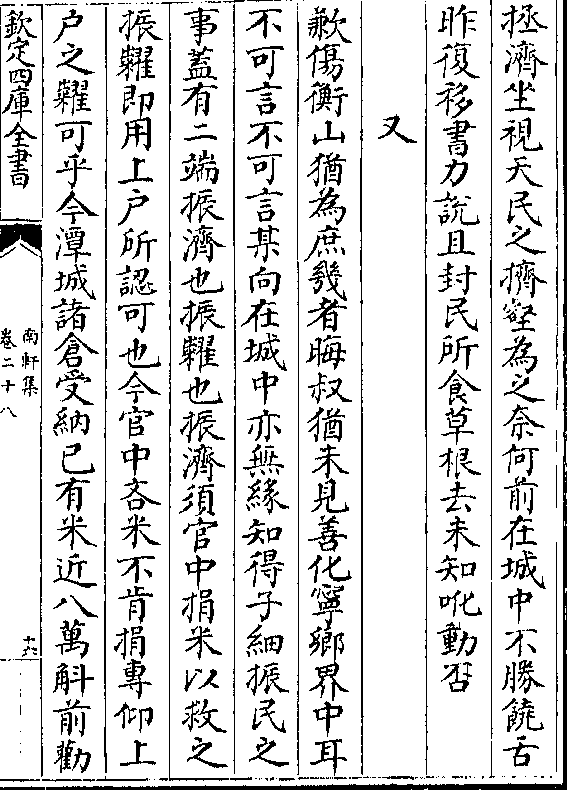 拯濟坐視天民之擠壑為之奈何前在城中不勝饒舌
昨復移書力說且封民所食草根去未知吪動否
又
歉傷衡山猶為庶幾者晦叔猶未見善化寧鄉界中耳
不可言不可言某向在城中亦無緣知得子細振民之
事蓋有二端振濟也振糶也振濟須官中捐米以救之
振糶即用上户所認可也今官中吝米不肯捐專仰上
户之糶可乎今潭城諸倉受納已有米近八萬斛前勸
欽定四庫全書
南軒集
卷二十八
十六